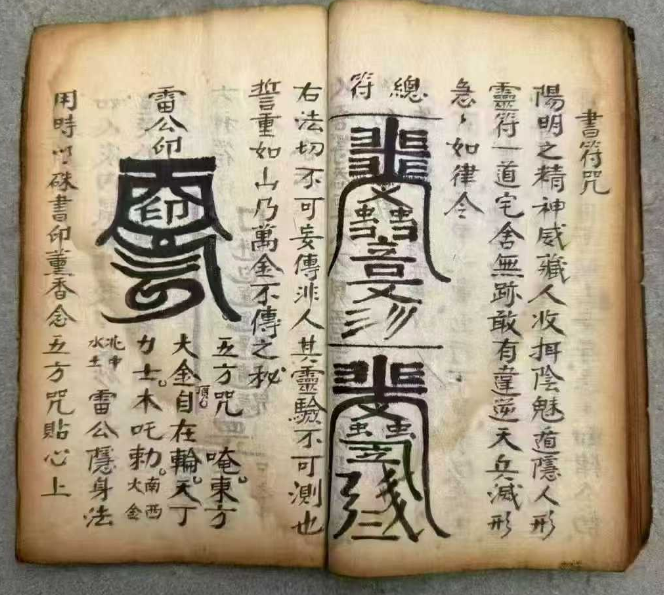 書符咒
陽明之精神威藏人收捐陰魅遁隱人形
靈符一道宅舍無跡敢有違逆天兵滅形
急々如律令
總符
右法切不可妄傳非人其靈驗不可測也
誓重如山乃萬金不傳之秘
雷公印
印
五方咒 唵東方
大金自在輪。天丁
頂石
力士。木吒勅。南西
火金
北中
水土
雷公隱身法
用時以硃書印薰香念五方咒貼心上